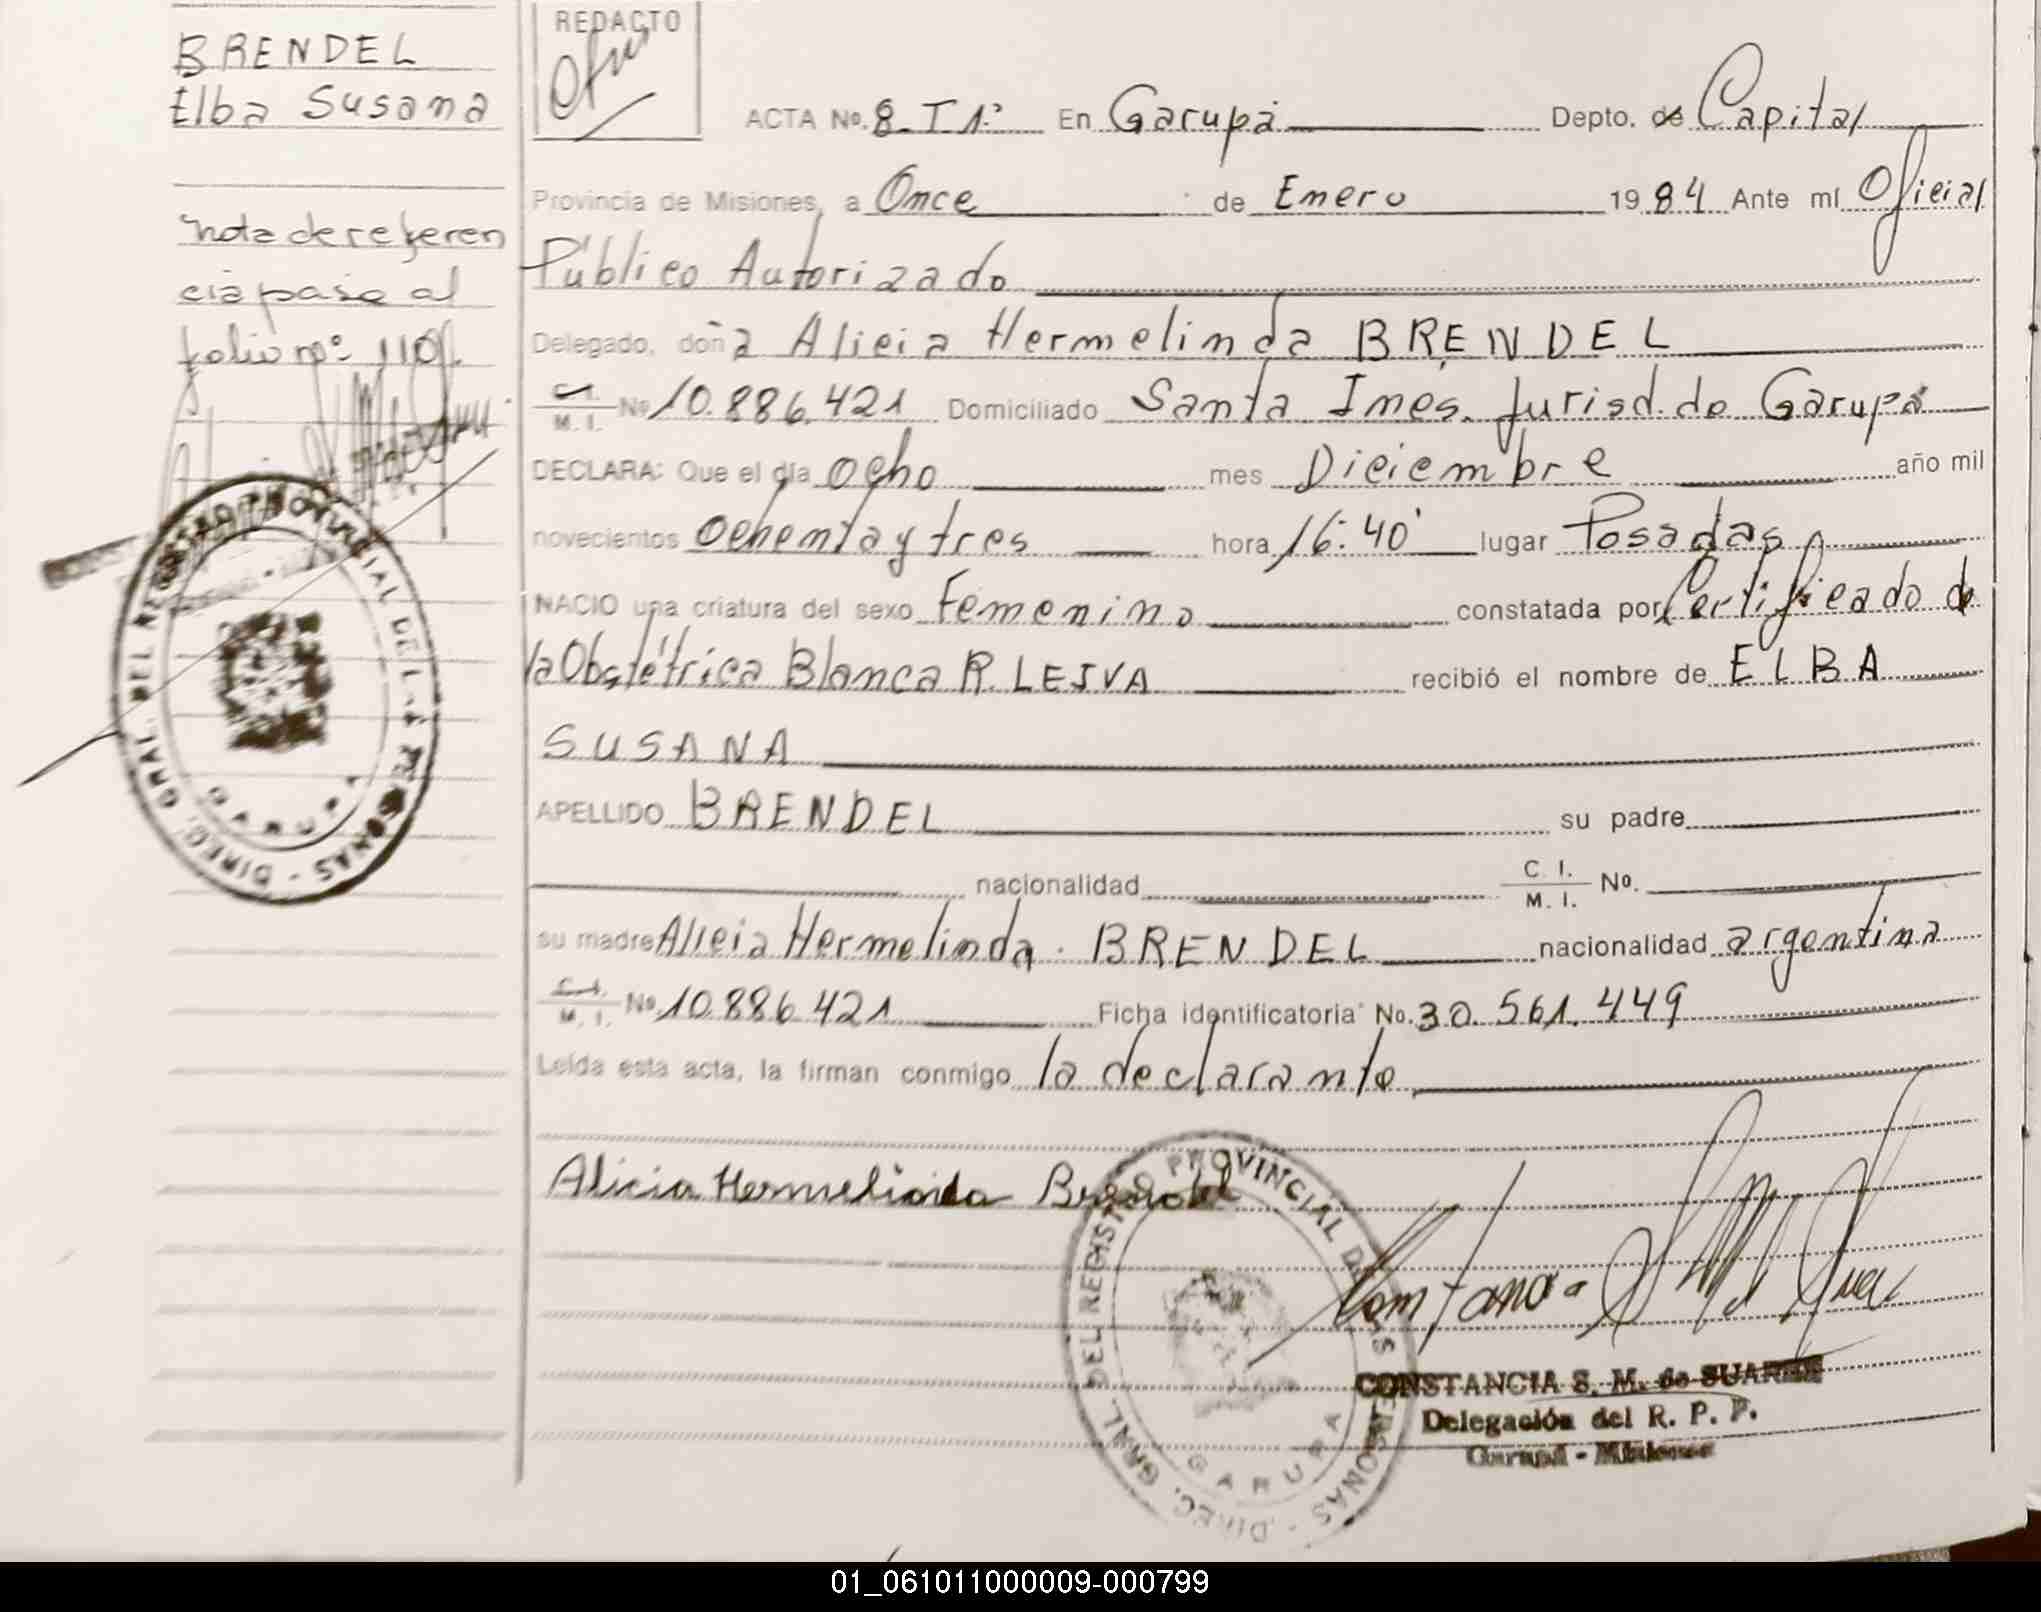 BRENDEL
Elba Susana
nota de referen
cia pase al
folio nº 110
REDACTO
ACTA No. 8-T1º En Garupá Depto. de Capital
Provincia de Misiones, a Once de Enero 1984 Ante mí Oficial
Público Autorizado
Delegado, doña Alicia Hermelinda BRENDEL
C.I. M. I. No 10.886.421 Domiciliado Santa Inés. Jurisd. de Garupá
DECLARA: Que el día ocho mes Diciembre año mil
novecientos ochenta y tres hora 16:40' lugar Posadas
NACIO una criatura del sexo Femenino constatada por Certificado de
la Obstétrica Blanca R. LEIVA recibió el nombre de ELBA
SUSANA
APELLIDO BRENDEL su padre
nacionalidad C. I. M. I. No.
su madre Alicia Hermelinda BRENDEL nacionalidad argentina
C.I. M. I. No 10.886.421 Ficha identificatoria No. 30.561.449
Leída esta acta, la firman conmigo la declarante
Alicia Hermelinda Brendel
DIREC. GRAL. DEL REGISTRO PROVINCIAL DE LAS PERSONAS
GARUPA
DIREC. GRAL. DEL REGISTRO PROVINCIAL DE LAS PERSONAS
GARUPA
CONSTANCIA S. M. de SUAREZ
Delegación del R. P. P.
Garupá - Misiones
01_061011000009-000799